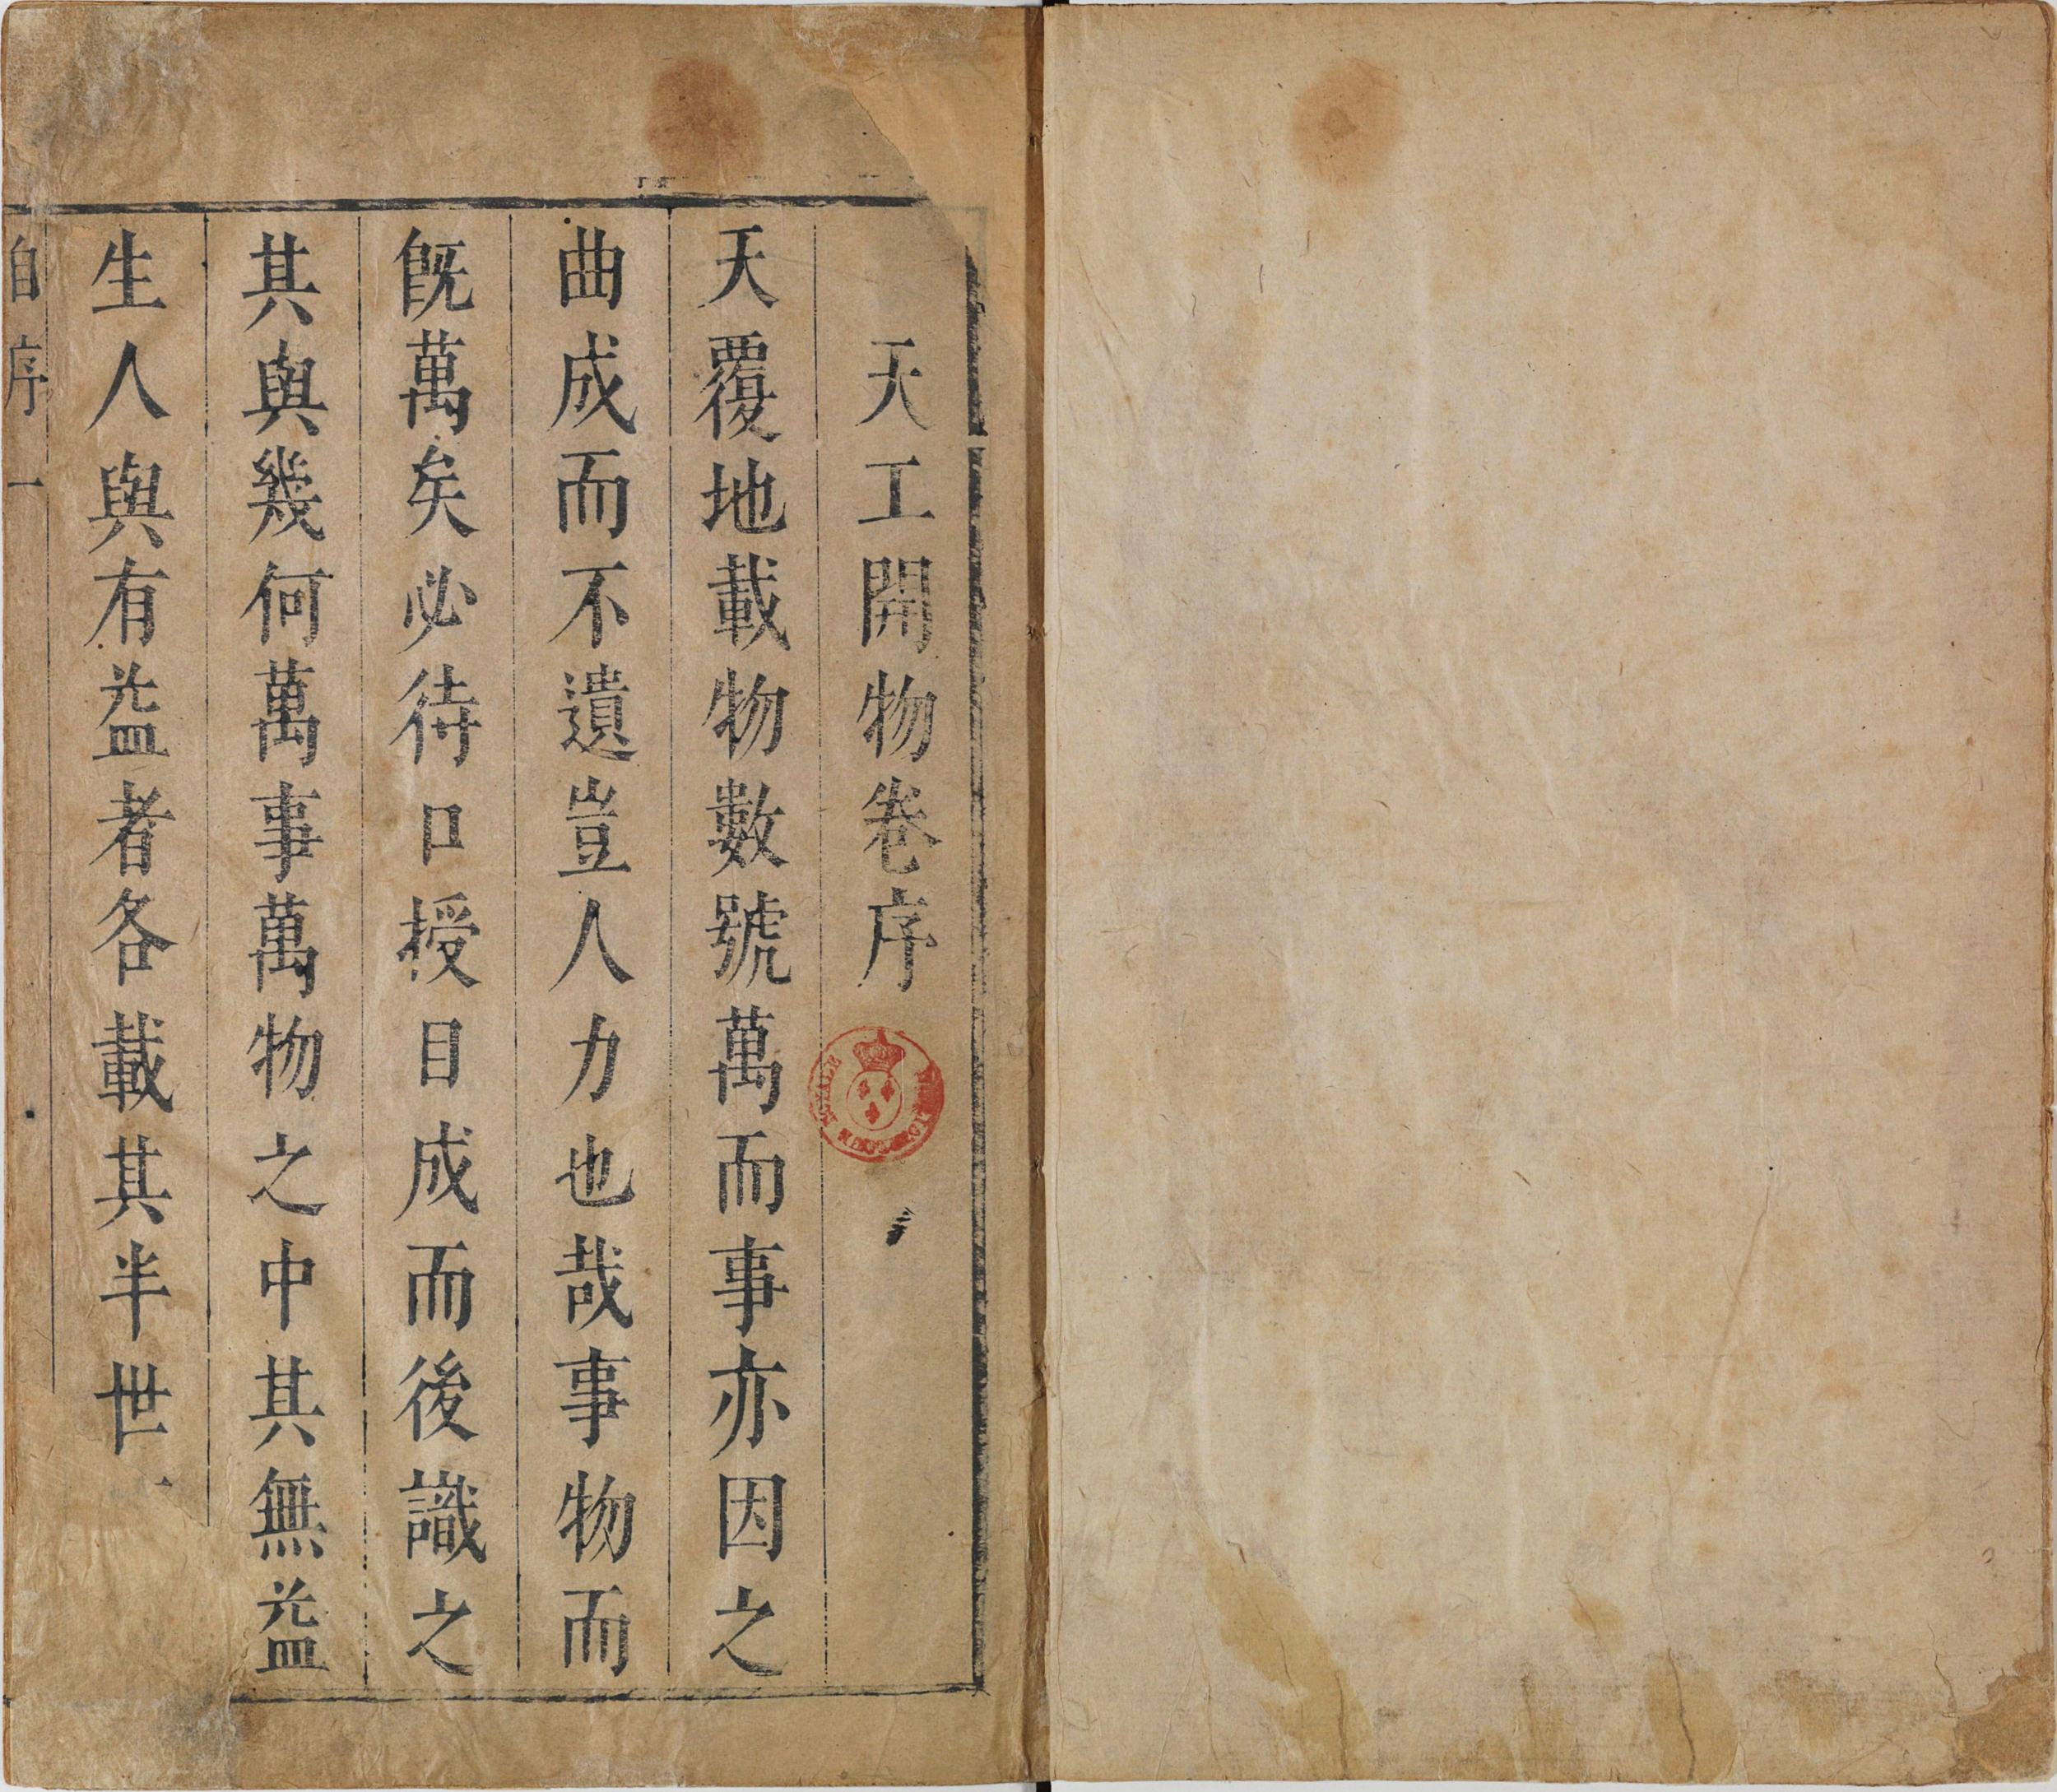 天工開物卷序
天覆地載物數號萬而事亦因之
曲成而不遺豈人力也哉事物而
旣萬矣必待口授目成而後識之
其與幾何萬事萬物之中其無益
生人與有益者各載其半世
自序 一